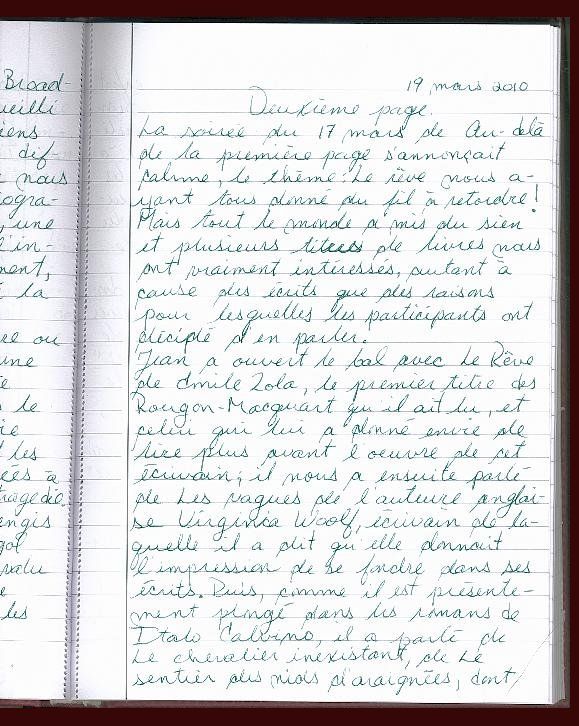 Broad-
ueilli
iens
dif-
nous
ogra-
, une
l'in-
ment,
la
re ou
une
e
le
rie
les
ées à
tragédie.
engis
gol
valu
e
les
19 mars 2010
Deuxième page.
La soirée du 17 mars de Au-delà
de la première page s'annonçait
calme, le thème: Le rêve nous a-
yant tous donné du fil à retordre!
Mais tout le monde a mis du sien
et plusieurs titres de livres nous
ont vraiment intéressés, autant à
cause des écrits que des raisons
pour lesquelles les participants ont
décidé d'en parler.
Jean a ouvert le bal avec Le Rêve
de Émile Zola, le premier titre des
Rougon-Macquart qu'il ait lu, et
celui qui lui a donné envie de
lire plus avant l'oeuvre de cet
écrivain; il nous a ensuite parlé
de Les vagues de l'auteure anglai-
se Virginia Woolf, écrivain de la-
quelle il a dit qu'elle donnait
l'impression de se fondre dans ses
écrits. Puis, comme il est présente-
ment plongé dans les romans de
Italo Calvino, il a parlé de
Le chevalier inexistant, de Le
sentier des nids d'araignées, dont